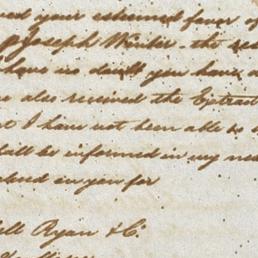 your esteemed favor of
Joseph Winter - the
have no doubt you have
also received the Extract
I have not been able to
be informed in my
in you for
Ryan & Co